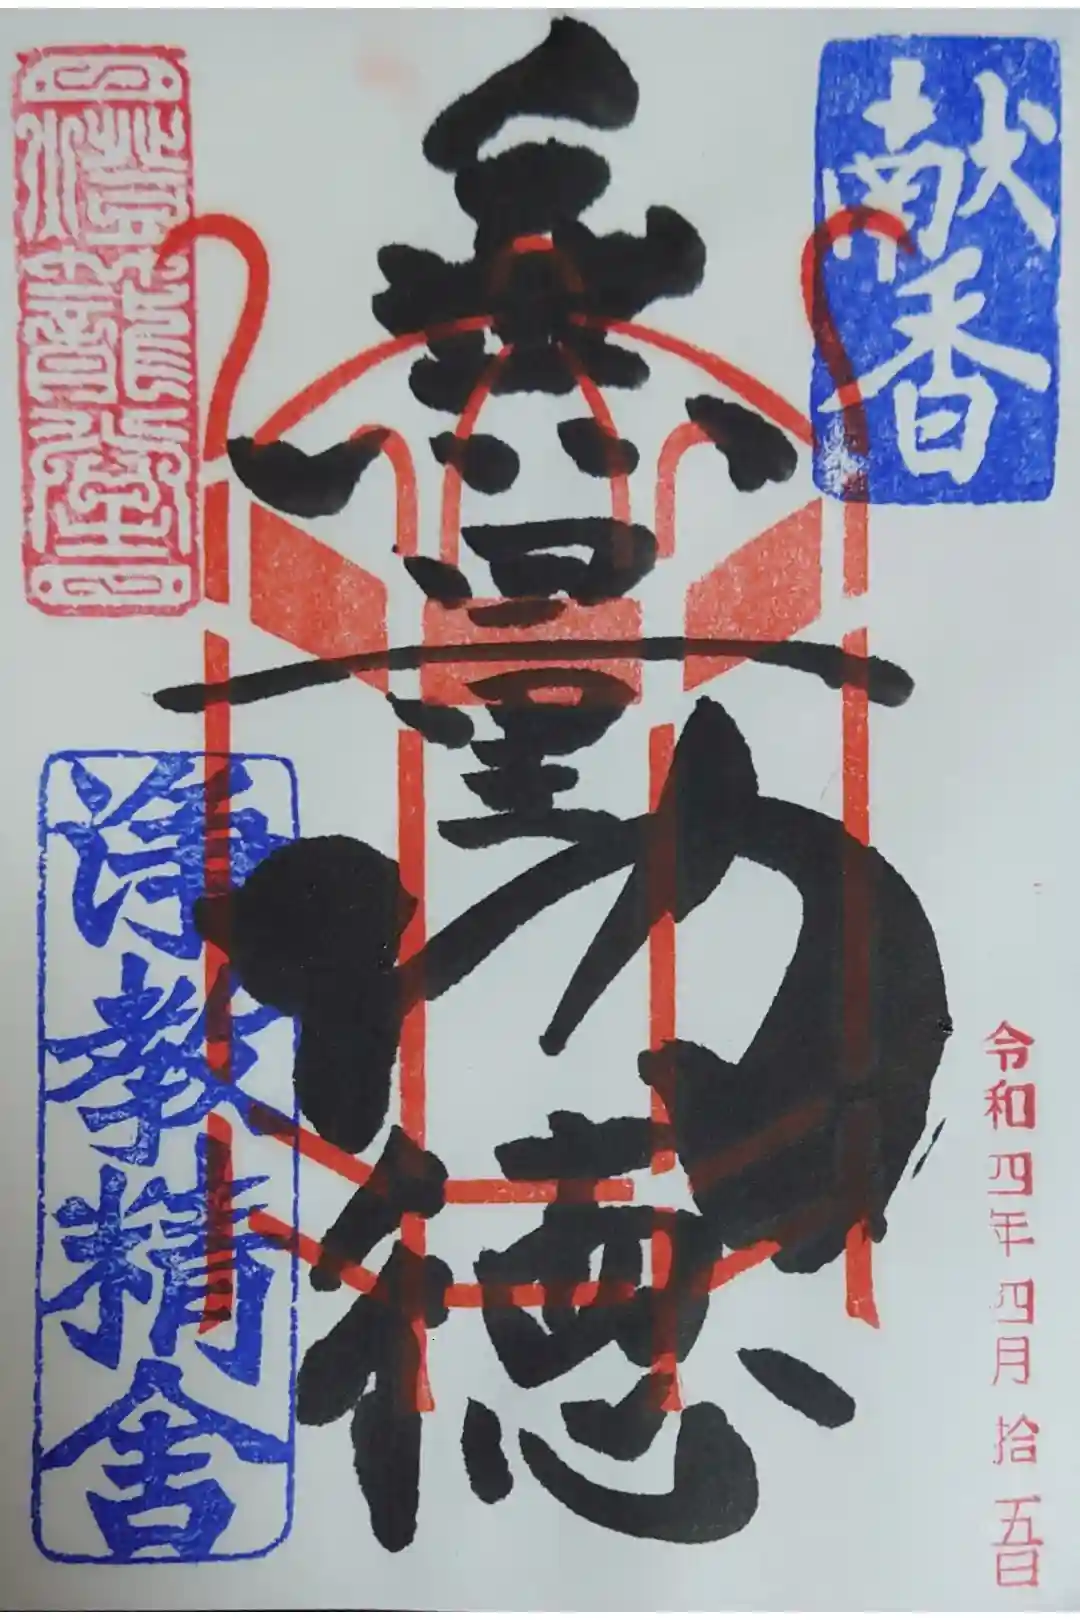 献香
無量功徳
浄教精舎
令和四年四月拾五日